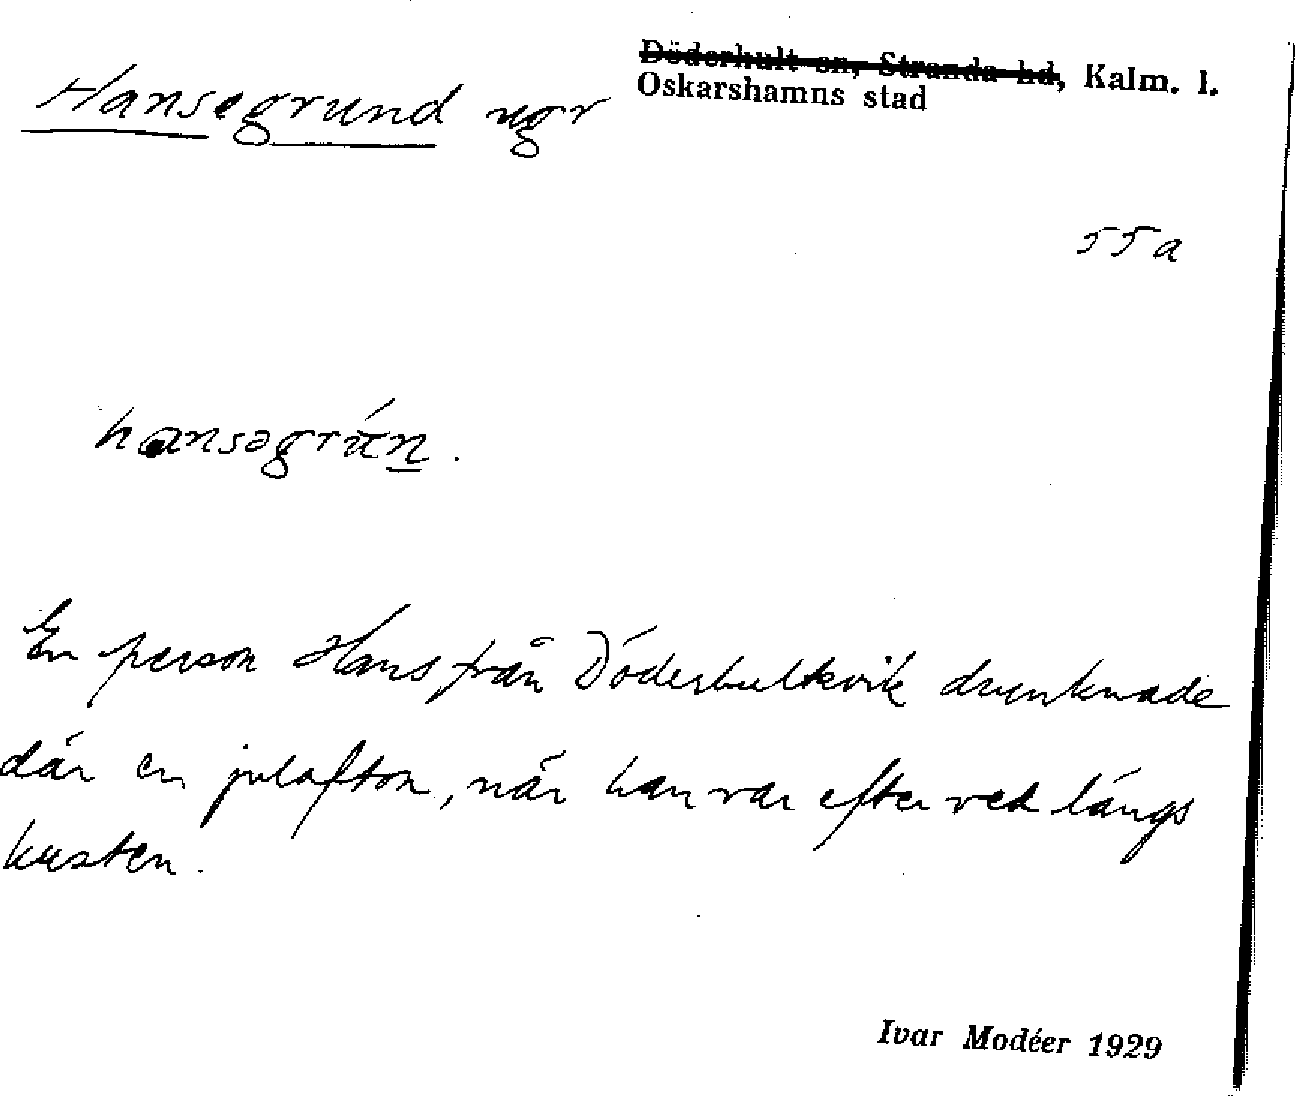 Hansegrund ugr
Döderhult sn, Stranda hd, Kalm. l.
Oskarshamns stad
55a
hansəgrún.
En person Hans från Döderhultsvik drunknade
där en julafton, när han var efter ved längs
kusten.
Ivar Modéer 1929